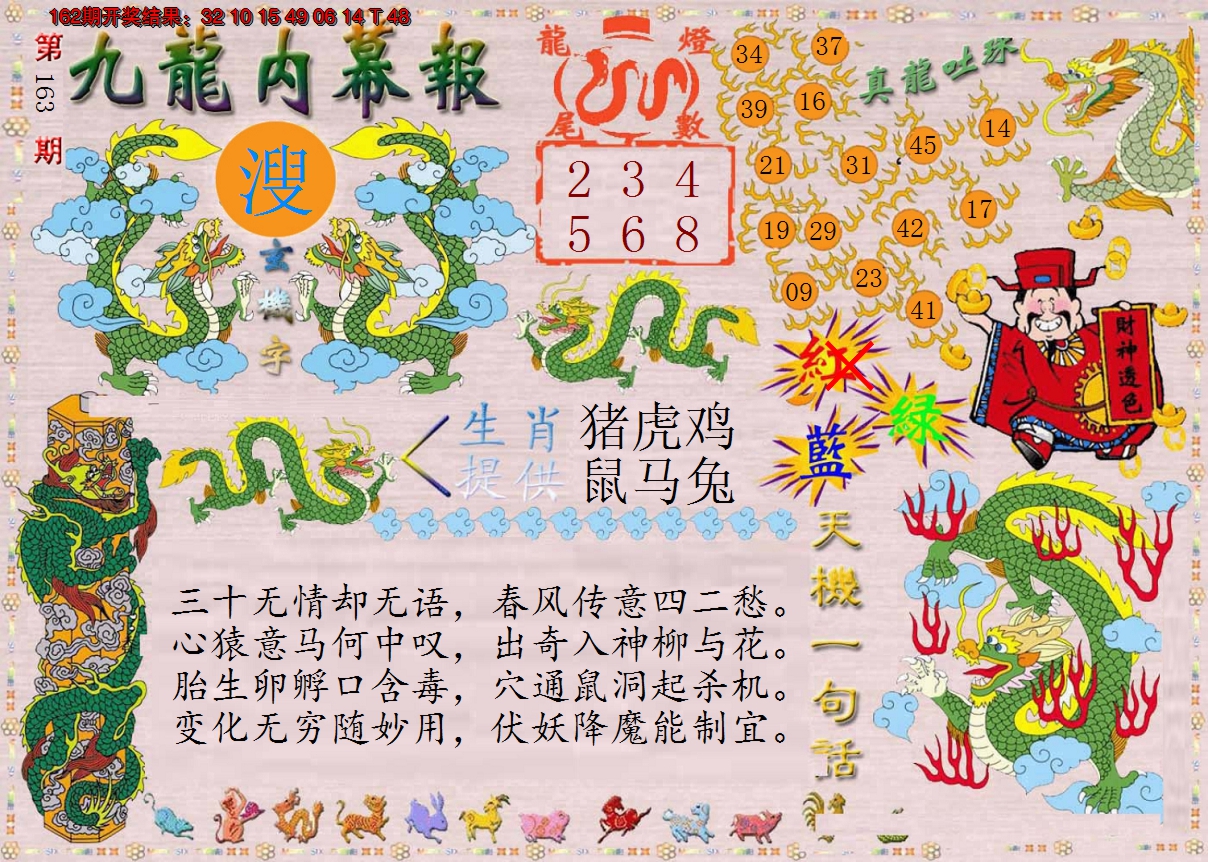 162期开奖结果：32 10 15 49 06 14 T 48
第163期
九龍内幕報
溲
玄機字
龍燈
尾數
2 3 4
5 6 8
真龍吐珠
34 37
39 16
21 31 45 14
19 29 42 17
09 23 41
紅
綠
藍
財神透色
生肖 猪虎鸡
提供 鼠马兔
天機一句话
三十无情却无语，春风传意四二愁。
心猿意马何中叹，出奇入神柳与花。
胎生卵孵口含毒，穴通鼠洞起杀机。
变化无穷随妙用，伏妖降魔能制宜。